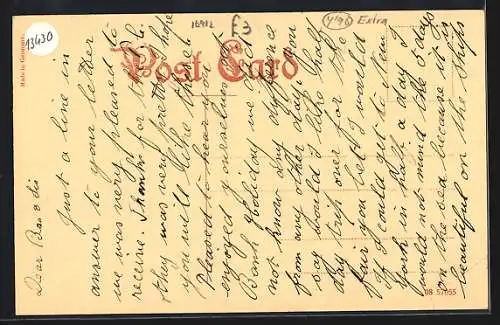 13430
16912
E3
4/90 Extra
Made in Germany.
Post Card
Dear Bro & Sis
Just a line in
answer to your letter
we was very pleased to
receive. Thanks for the P.C.
they was very pretty I hope
you will like these
Pleased to hear you
enjoyed yourselves
Bank Holiday we did
not know any difference
from any other day. you
say would I like that
day trip over for the
fair you bet I would
if I could get to New
York in half a day I
would not mind the 5 days
on the sea because it is
beautiful on the ships
08 57055